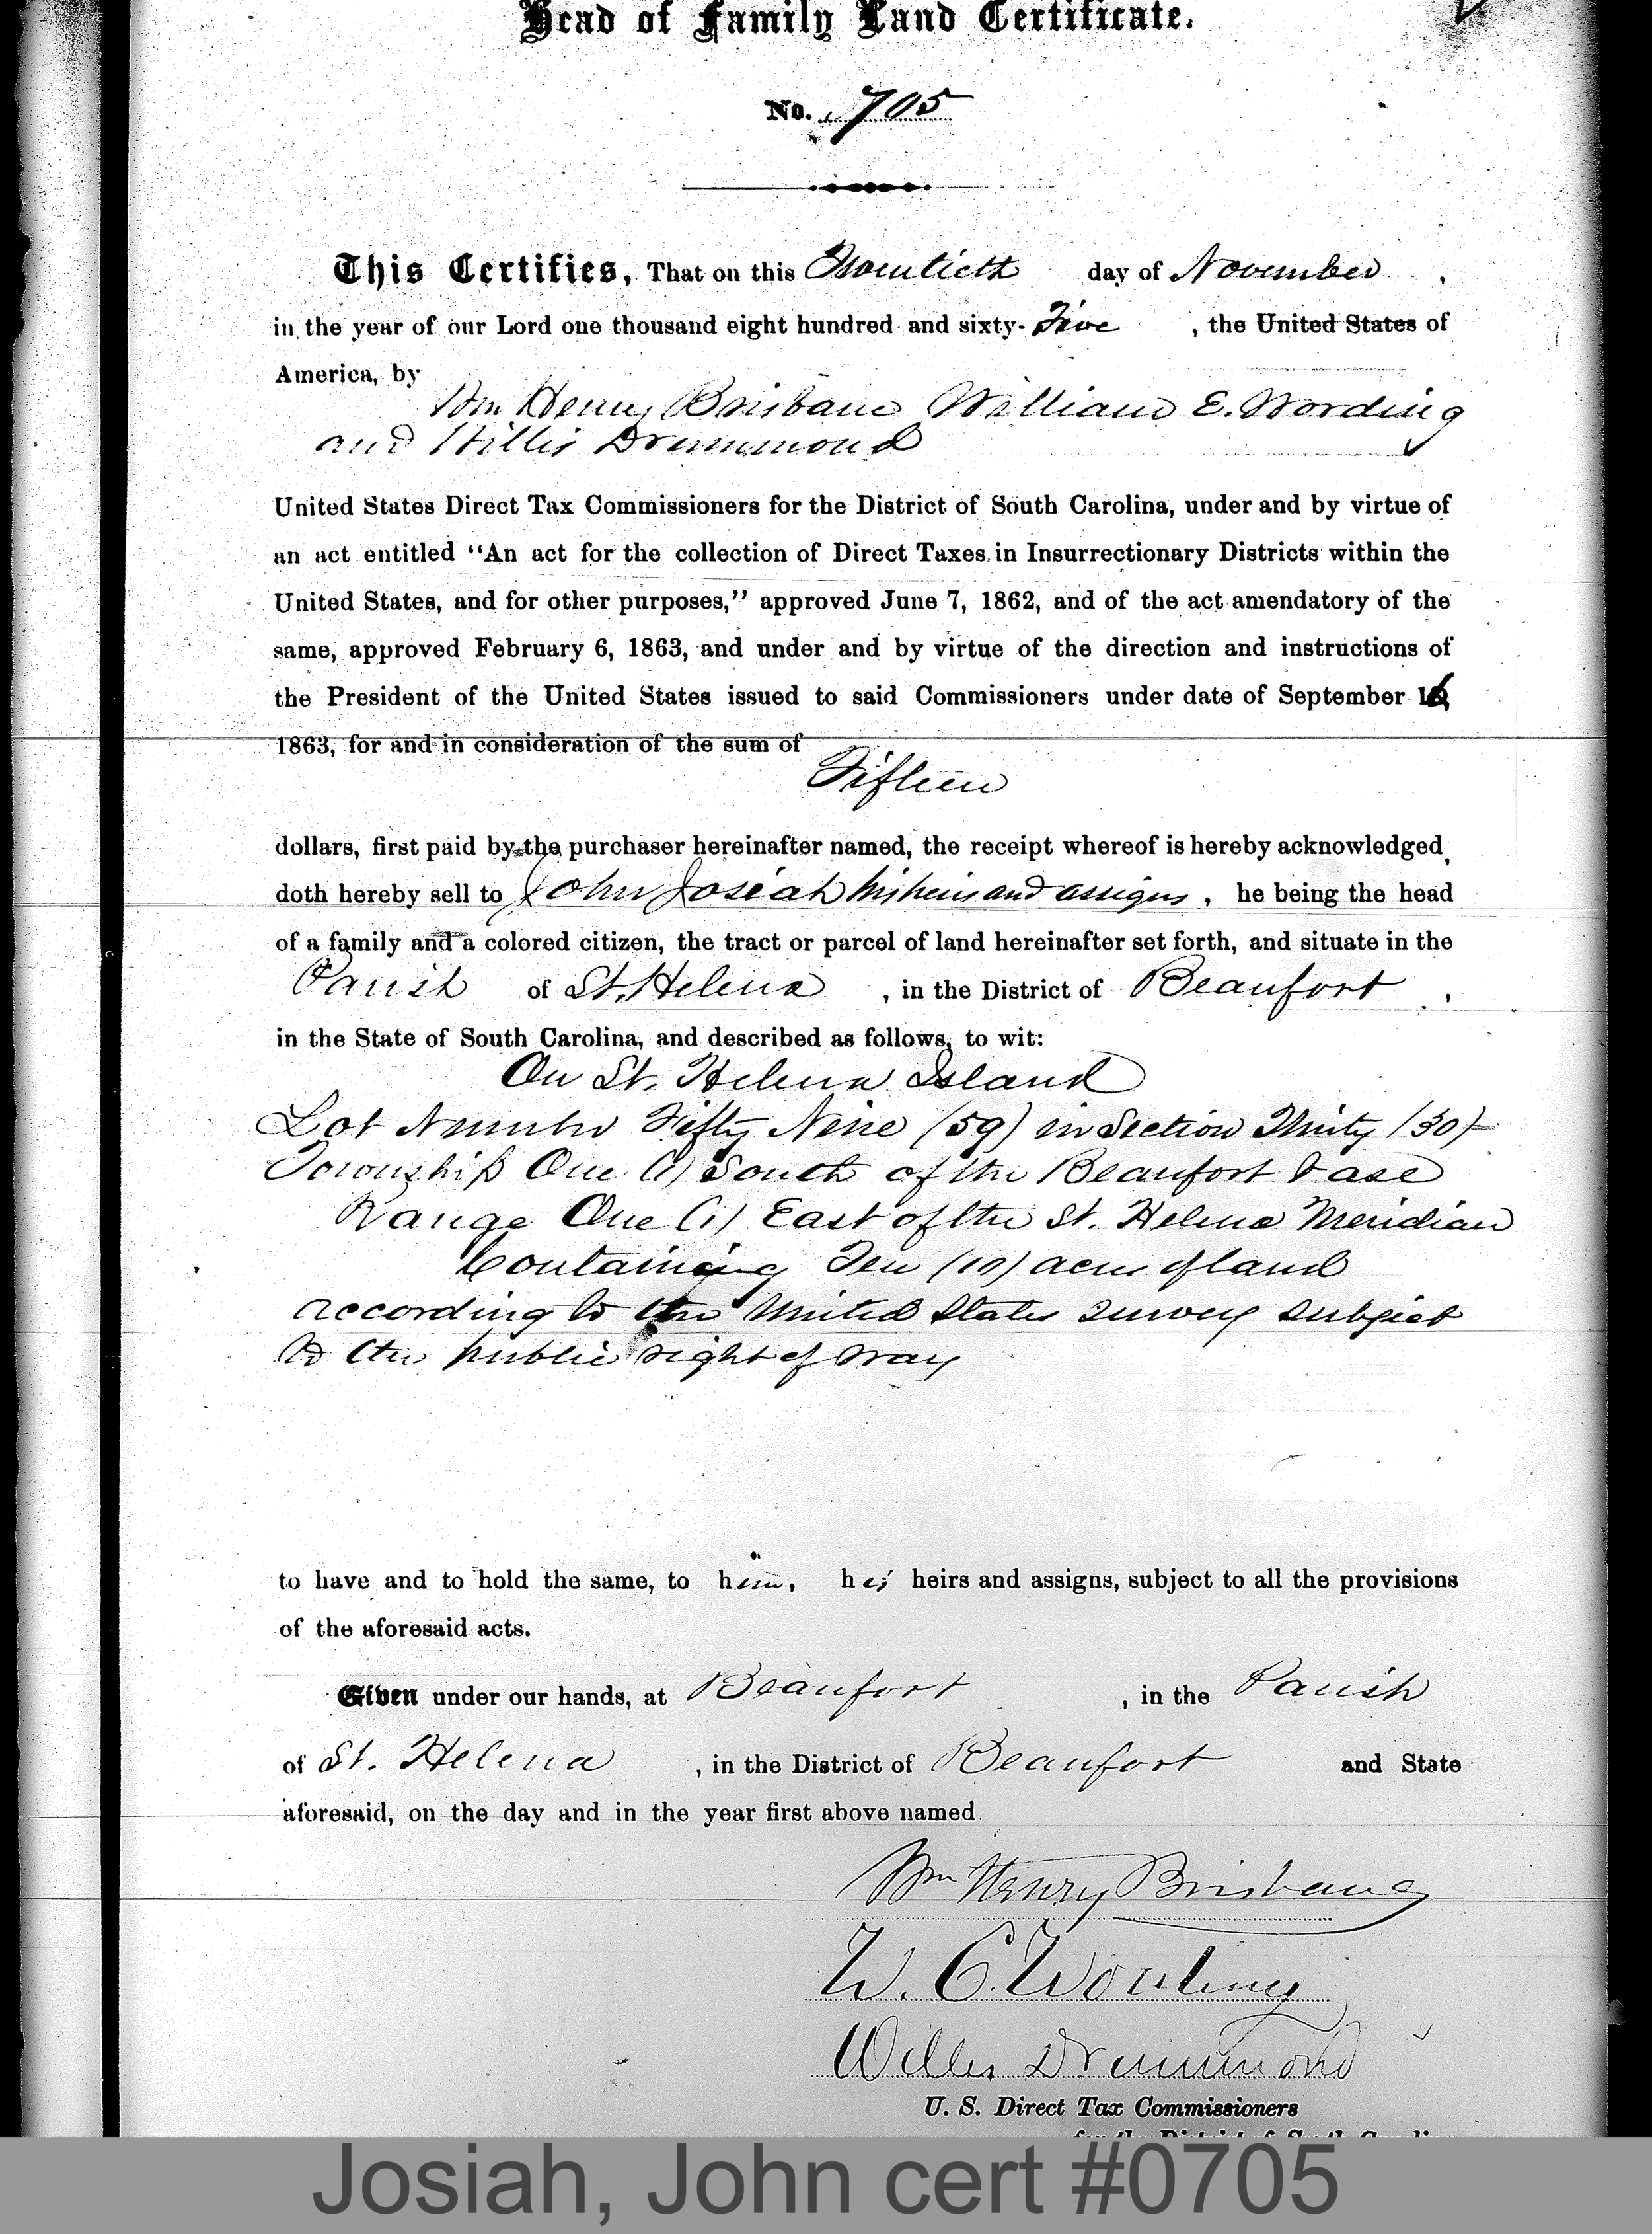 Head of Family Land Certificate.
No. 705
This Certifies, That on this Twentieth day of November,
in the year of our Lord one thousand eight hundred and sixty-Five, the United States of
America, by
Wm Henry Brisbane William E. Wording
and Willis Drummond
United States Direct Tax Commissioners for the District of South Carolina, under and by virtue of
an act entitled "An act for the collection of Direct Taxes in Insurrectionary Districts within the
United States, and for other purposes," approved June 7, 1862, and of the act amendatory of the
same, approved February 6, 1863, and under and by virtue of the direction and instructions of
the President of the United States issued to said Commissioners under date of September 16,
1863, for and in consideration of the sum of
Fifteen
dollars, first paid by the purchaser hereinafter named, the receipt whereof is hereby acknowledged,
doth hereby sell to John Josiah his heirs and assigns, he being the head
of a family and a colored citizen, the tract or parcel of land hereinafter set forth, and situate in the
Parish of St. Helena, in the District of Beaufort,
in the State of South Carolina, and described as follows, to wit:
On St. Helena Island
Lot Number Fifty Nine (59) in Section Thirty (30)
Township One (1) South of the Beaufort Base
Range One (1) East of the St. Helena Meridian
Containing Ten (10) acres of land
according to the United States survey subject
to the public right of way
to have and to hold the same, to him, his heirs and assigns, subject to all the provisions
of the aforesaid acts.
Given under our hands, at Beaufort, in the Parish
of St. Helena, in the District of Beaufort and State
aforesaid, on the day and in the year first above named
Wm Henry Brisbane
W. E. Wording
Willis Drummond
U. S. Direct Tax Commissioners
for the District of South Carolina
Josiah, John cert #0705